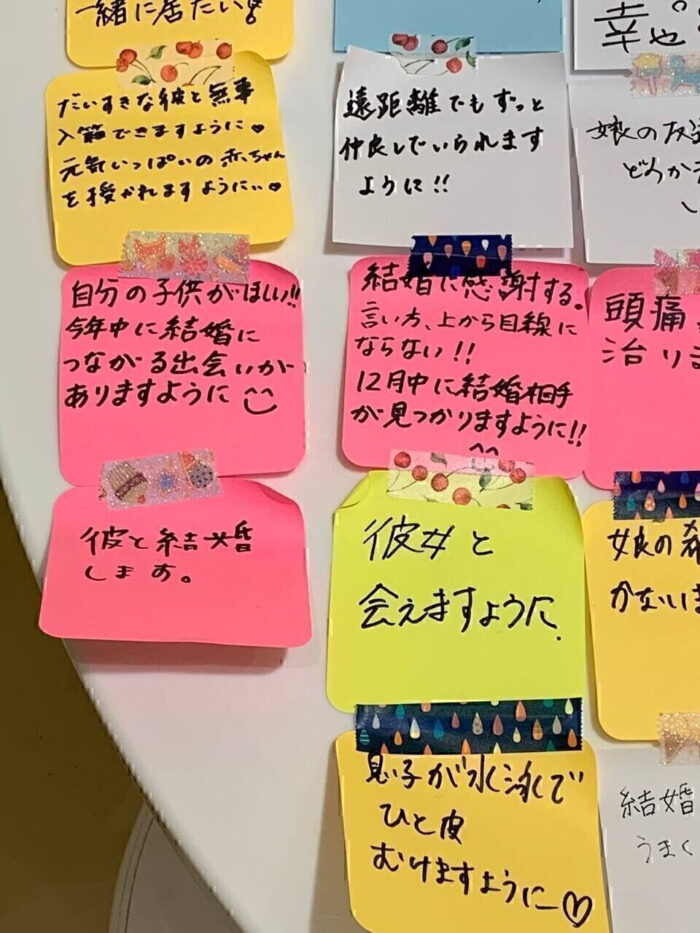 一緒に居たい!
幸せ
だいすきな彼と無事
入籍できますように♥
元気いっぱいの赤ちゃん
を授かれますように♥
遠距離でもずっと
仲良しでいられます
ように!!
娘の友達
どうか
自分の子供がほしい!!
今年中に結婚に
つながる出会いが
ありますように
結婚に感謝する。
言い方、上から目線に
ならない!!
12月中に結婚相手
が見つかりますように!!
頭痛
治りま
彼と結婚
します。
彼女と
会えますように.
娘の希
かないま
息子が水泳で
ひと皮
むけますように♡
結婚
うまく